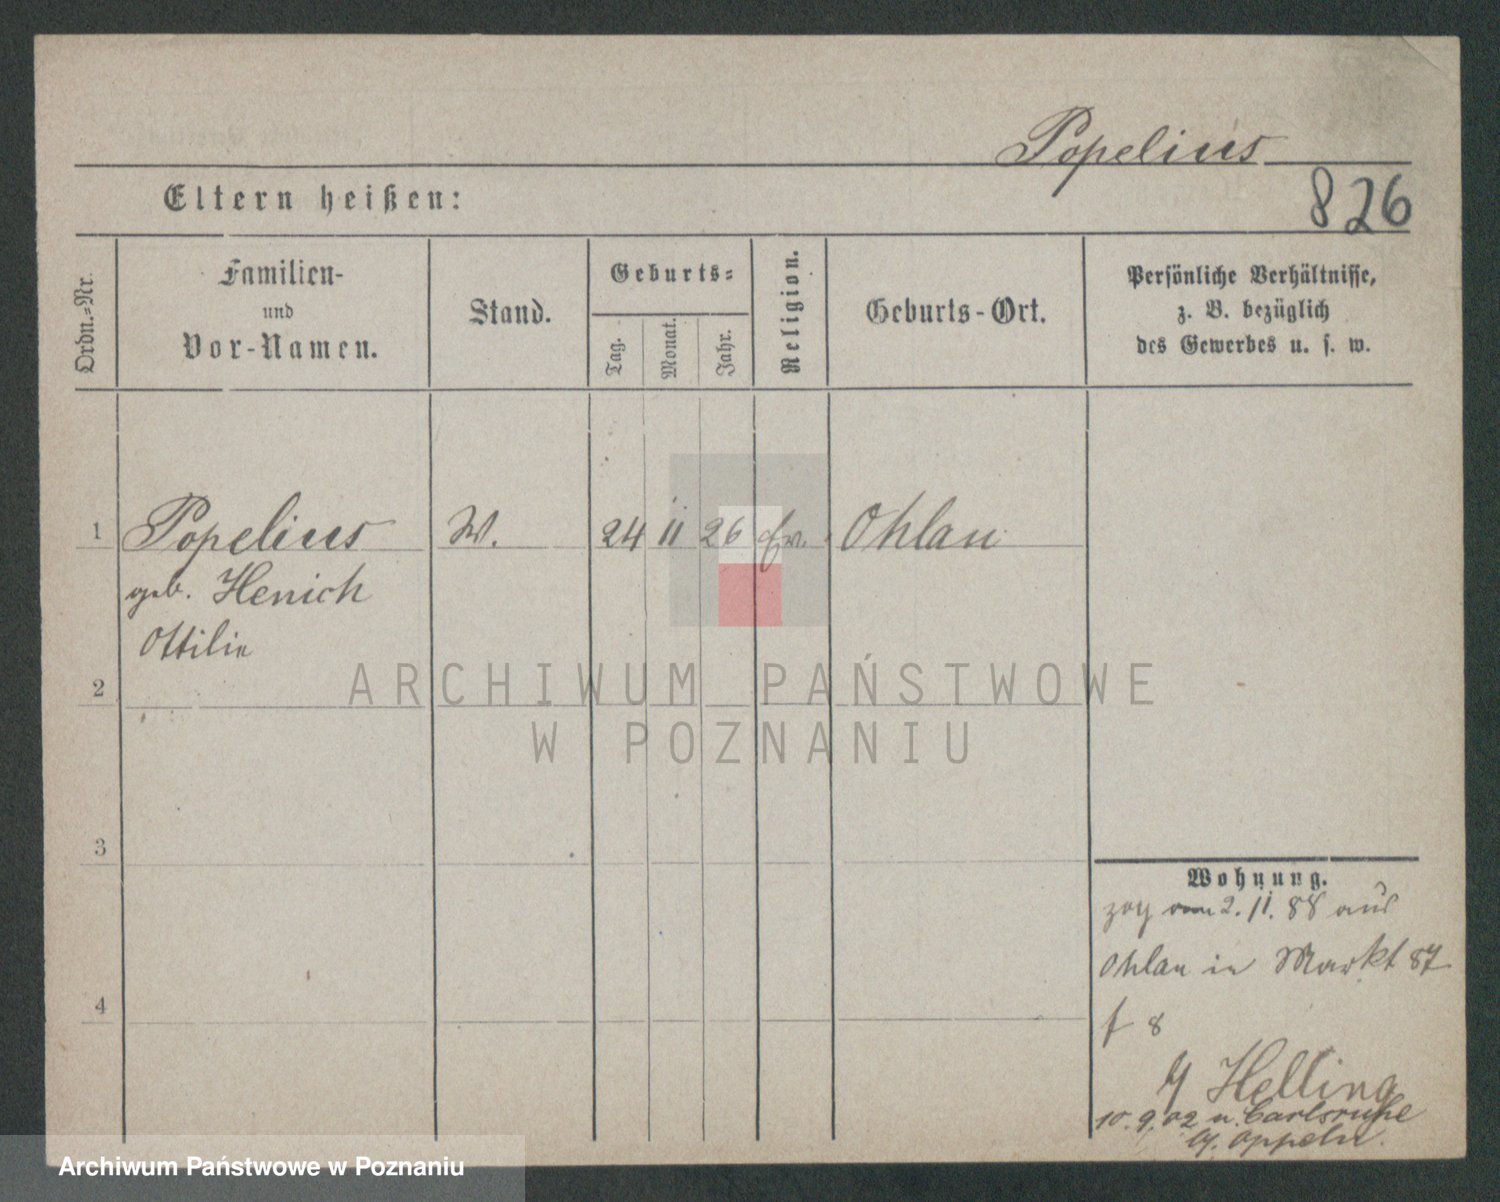 Popelius
826
Eltern heißen:
Ordn.-Nr.
Familien-
und
Vor-Namen.
Stand.
Geburts-
Tag.
Monat.
Jahr.
Religion.
Geburts-Ort.
Persönliche Verhältnisse,
z. B. bezüglich
des Gewerbes u. s. w.
1 Popelius W. 24 11 26 ev. Ohlau
geb. Henich
Ottilie
2
3
4
ARCHIWUM PAŃSTWOWE
W POZNANIU
Wohnung.
zog 2. 11. 88 aus
Ohlau in Markt 87
f 8
Helling
10. 9. 02 n. Carlsruhe
Oppeln.
Archiwum Państwowe w Poznaniu